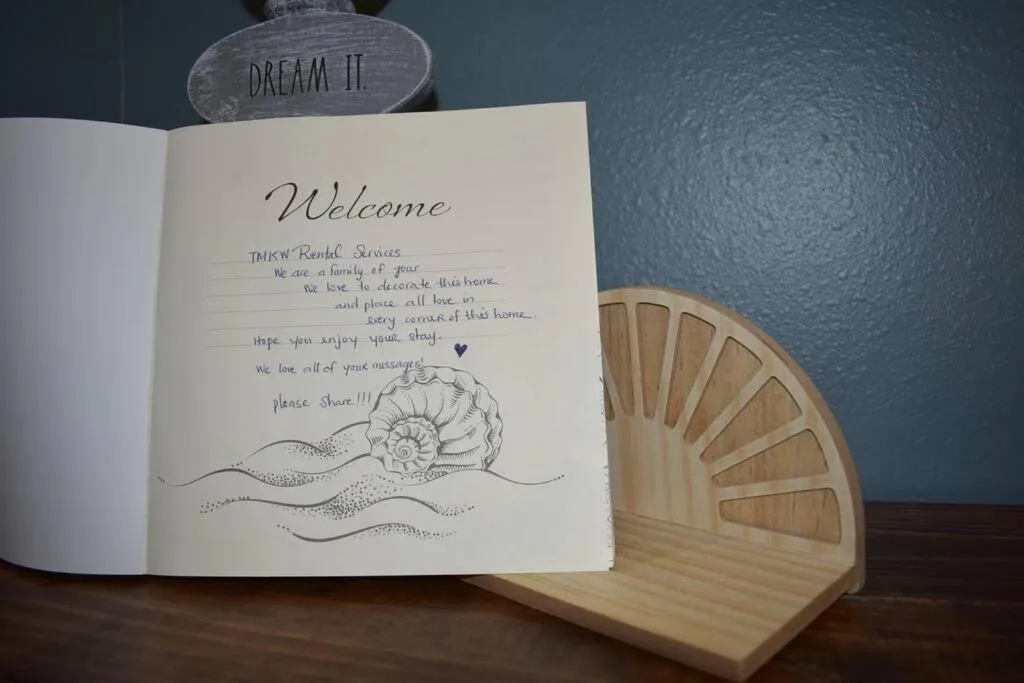 DREAM IT.
Welcome
TMKW Rental Services
We are a family of four
We love to decorate this home
and place all love in
every corner of this home.
Hope you enjoy your stay.
We love all of your messages!
please share!!!